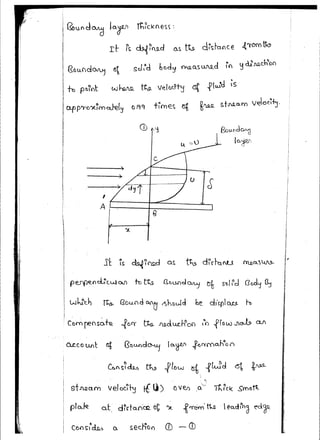 Boundary layer Thickness:
It is defined as the distance from the
Boundary of solid body measured in y direction
to point where the velocity of fluid is
approximately 0.99 times of free stream velocity.
① y
Boundary
layer
u = U
C
U
dy
δ
A
B
x
It is defined as the distance measure
perpendicular to the Boundary of solid Body By
which the Boundary should be displace to
compensate for the reduction in flow rate on
account of Boundary layer formation
Consider the flow of fluid of free
stream velocity (U) over a Thick smooth
plate at distance of x from the leading edge
Consider a section ① - ①